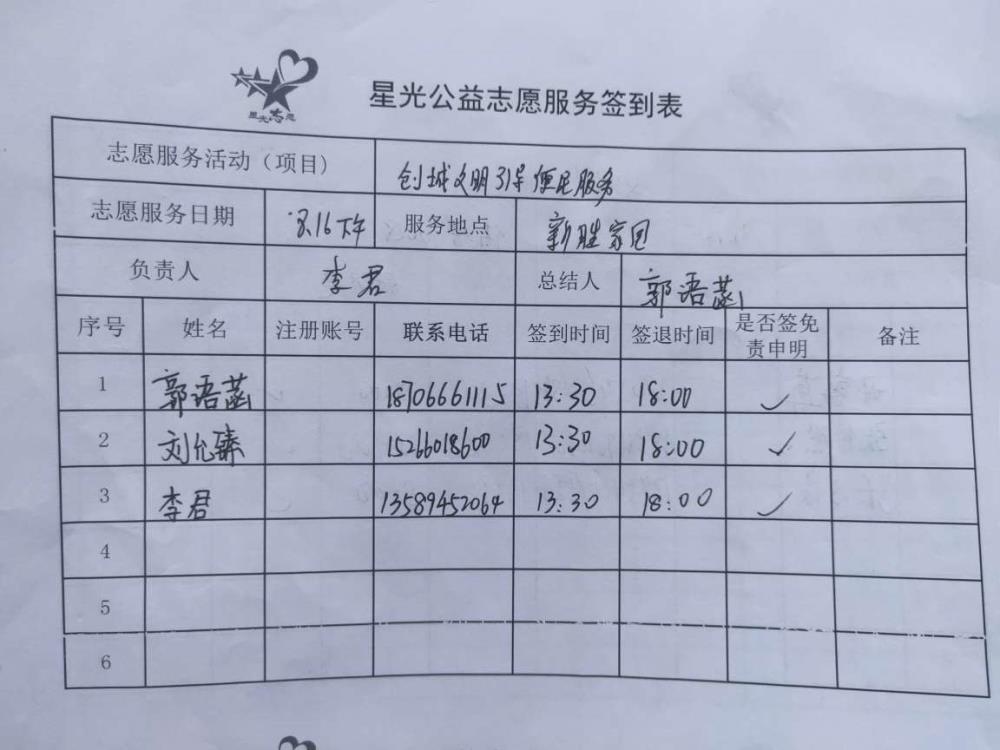 星光志愿
星光公益志愿服务签到表
志愿服务活动（项目） 创城文明引导便民服务
志愿服务日期 8.16下午 服务地点 新胜家园
负责人 李君 总结人 郭语菡
序号 姓名 注册账号 联系电话 签到时间 签退时间 是否签免责申明 备注
1 郭语菡 18706661115 13:30 18:00 ✓
2 刘允臻 15266018600 13:30 18:00 ✓
3 李君 13589452064 13:30 18:00 ✓
4
5
6